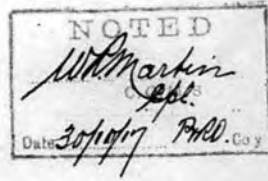 NOTED
W.R. Martin
Cpl.
Date 30/10/17 Coy